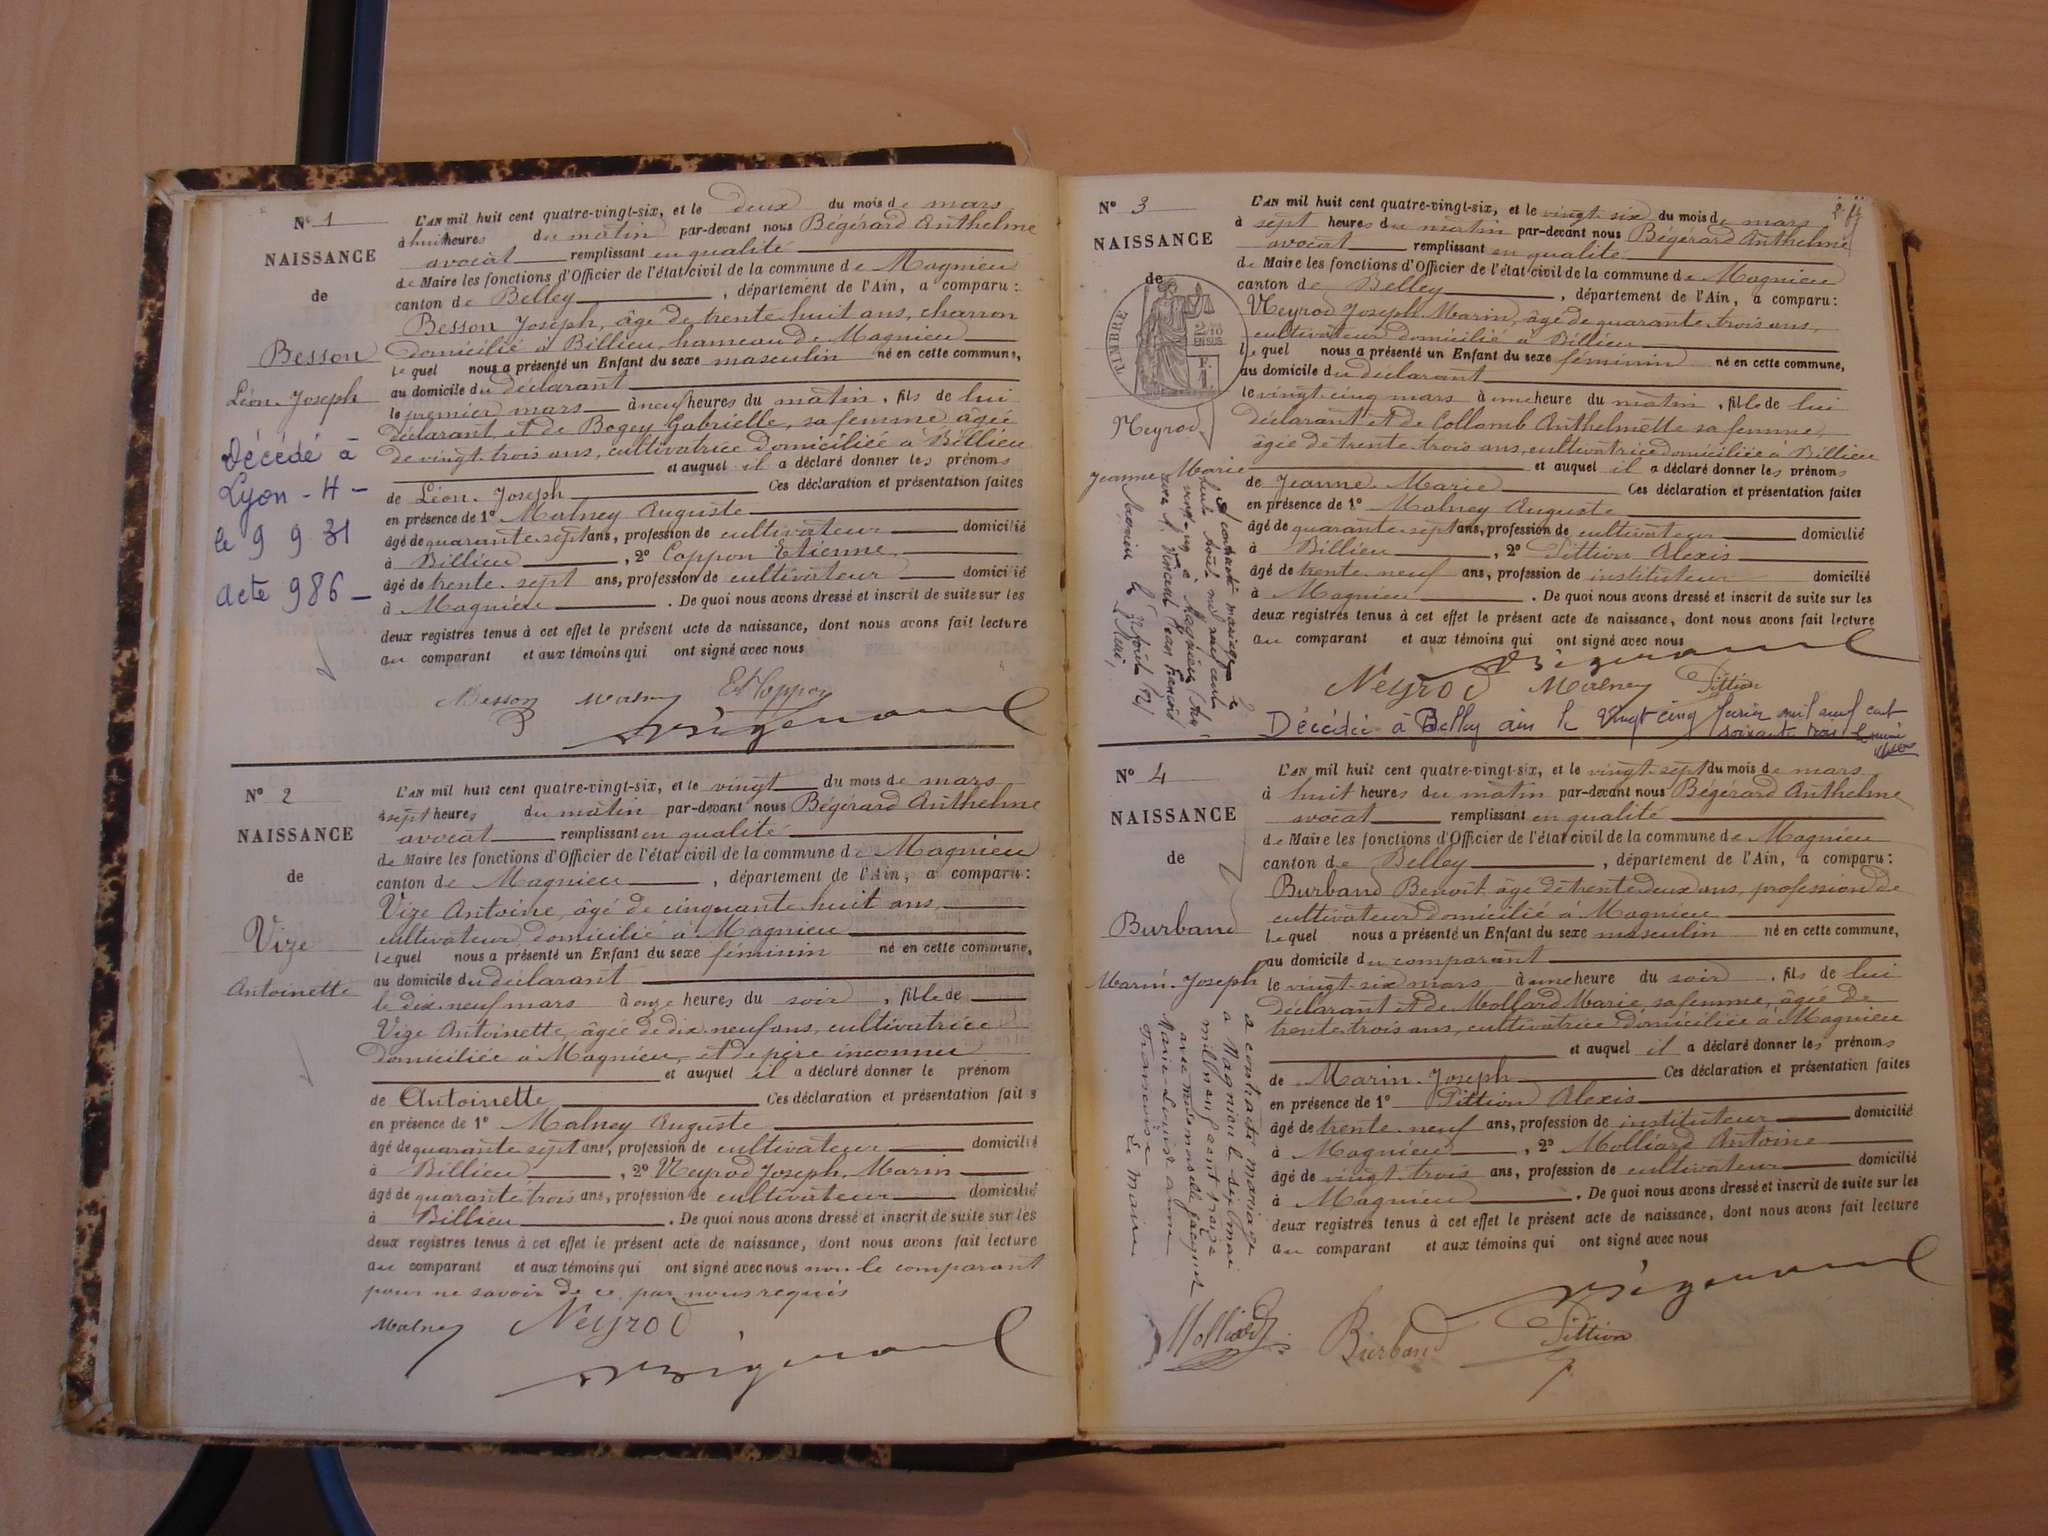 N° 1
NAISSANCE
de
Besson
Léon-Joseph
Décédé à
Lyon - 4 -
le 9 9 31
acte 986 -
L'AN mil huit cent quatre-vingt-six, et le deux du mois de mars
à huit heures du matin par-devant nous Bégérard Anthelme
avocat remplissant en qualité
de Maire les fonctions d'Officier de l'état civil de la commune de Magnieu
canton de Belley, département de l'Ain, a comparu:
Besson Joseph, âgé de trente huit ans, charron
domicilié à Billieu, hameau de Magnieu
lequel nous a présenté un Enfant du sexe masculin né en cette commune,
au domicile du déclarant
le premier mars à neuf heures du matin, fils de lui
déclarant et de Bogey Gabrielle, sa femme âgée
de vingt-trois ans, cultivatrice domiciliée à Billieu
et auquel il a déclaré donner les prénoms
de Léon-Joseph Ces déclaration et présentation faites
en présence de 1° Malney Auguste
âgé de quarante-sept ans, profession de cultivateur domicilié
à Billieu, 2° Coppon Etienne
âgé de trente-sept ans, profession de cultivateur domicilié
à Magnieu. De quoi nous avons dressé et inscrit de suite sur les
deux registres tenus à cet effet le présent acte de naissance, dont nous avons fait lecture
au comparant et aux témoins qui ont signé avec nous
Besson Malney
N° 2
NAISSANCE
de
Vize
Antoinette
L'AN mil huit cent quatre-vingt-six, et le vingt du mois de mars
à sept heures du matin par-devant nous Bégérard Anthelme
avocat remplissant en qualité
de Maire les fonctions d'Officier de l'état civil de la commune de Magnieu
canton de Magnieu, département de l'Ain, a comparu:
Vize Antoine, âgé de cinquante huit ans,
cultivateur, domicilié à Magnieu
lequel nous a présenté un Enfant du sexe féminin né en cette commune,
au domicile du déclarant
le dix-neuf mars à onze heures du soir, fille de
Vize Antoinette, âgée de dix-neuf ans, cultivatrice
domiciliée à Magnieu, et de père inconnu
et auquel il a déclaré donner le prénom
de Antoinette Ces déclaration et présentation faites
en présence de 1° Malney Auguste
âgé de quarante sept ans, profession de cultivateur domicilié
à Billieu, 2° Neyrod Joseph-Marin
âgé de quarante-trois ans, profession de cultivateur domicilié
à Billieu. De quoi nous avons dressé et inscrit de suite sur les
deux registres tenus à cet effet le présent acte de naissance, dont nous avons fait lecture
au comparant et aux témoins qui ont signé avec nous non le comparant
pour ne savoir de ce par nous requis
Malney Neyrod
N° 3
NAISSANCE
de
TIMBRE
Neyrod
Jeanne Marie
a contracté mariage le
Magnieu
L'AN mil huit cent quatre-vingt-six, et le vingt-six du mois de mars
à sept heures du matin par-devant nous Bégérard Anthelme
avocat remplissant en qualité
de Maire les fonctions d'Officier de l'état civil de la commune de Magnieu
canton de Belley, département de l'Ain, a comparu:
Neyrod Joseph Marin, âgé de quarante-trois ans,
cultivateur domicilié à Billieu
lequel nous a présenté un Enfant du sexe féminin né en cette commune,
au domicile du déclarant
le vingt-cinq mars à une heure du matin, fille de lui
déclarant et de Collomb Anthelmette sa femme,
âgée de trente-trois ans, cultivatrice domiciliée à Billieu
et auquel il a déclaré donner les prénoms
de Jeanne-Marie Ces déclaration et présentation faites
en présence de 1° Malney Auguste
âgé de quarante-sept ans, profession de cultivateur domicilié
à Billieu, 2° Pittion Alexis
âgé de trente-neuf ans, profession de instituteur domicilié
à Magnieu. De quoi nous avons dressé et inscrit de suite sur les
deux registres tenus à cet effet le présent acte de naissance, dont nous avons fait lecture
au comparant et aux témoins qui ont signé avec nous
Neyrod Malney Pittion
Décédée à Belley ain le vingt cinq mil neuf cent
soixante trois
N° 4
NAISSANCE
de
Burband
Marin-Joseph
a contracté mariage
a Magnieu le six mai
mil neuf cent treize
avec mademoiselle Jacquet
Marie-Louise anna
Francoise
Le Maire
L'AN mil huit cent quatre-vingt-six, et le vingt-sept du mois de mars
à huit heures du matin par-devant nous Bégérard Anthelme
avocat remplissant en qualité
de Maire les fonctions d'Officier de l'état civil de la commune de Magnieu
canton de Belley, département de l'Ain, a comparu:
Burband Benoît âgé de trente-deux ans, profession de
cultivateur domicilié à Magnieu
lequel nous a présenté un Enfant du sexe masculin né en cette commune,
au domicile du comparant
le vingt-six mars à une heure du soir, fils de lui
déclarant et de Mollard Marie, sa femme, âgée de
trente-trois ans, cultivatrice domiciliée à Magnieu
et auquel il a déclaré donner les prénoms
de Marin-Joseph Ces déclaration et présentation faites
en présence de 1° Pittion Alexis
âgé de trente-neuf ans, profession de instituteur domicilié
à Magnieu, 2° Molliard Antoine
âgé de vingt-trois ans, profession de cultivateur domicilié
à Magnieu. De quoi nous avons dressé et inscrit de suite sur les
deux registres tenus à cet effet le présent acte de naissance, dont nous avons fait lecture
au comparant et aux témoins qui ont signé avec nous
Molliard Burband Pittion